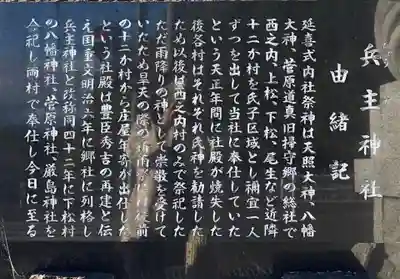 兵主神社
由緒記
延喜式内社祭神は天照大神、八幡
大神、菅原道真旧掃守郷の総社で
西之内、上松、下松、尾生など近隣
十二か村を氏子区域とし禰宜一人
ずつを出して当社に奉仕していた
という天正年間に社殿が焼失した
後各村はそれぞれ氏神を勧請した
ため以後は西之内村のみで祭祀した
ただ雨降りの神として崇敬を受けて
いたため旱天の際の祈雨祭には従前
の十二か村から庄屋年寄が出仕した
という社殿は豊臣秀吉の再建と伝
え国重文明治六年に郷社に列格し
兵主神社と改称同四十二年に下松村
の八幡神社、菅原神社、厳島神社を
合祀し両村で奉仕し今日に至る